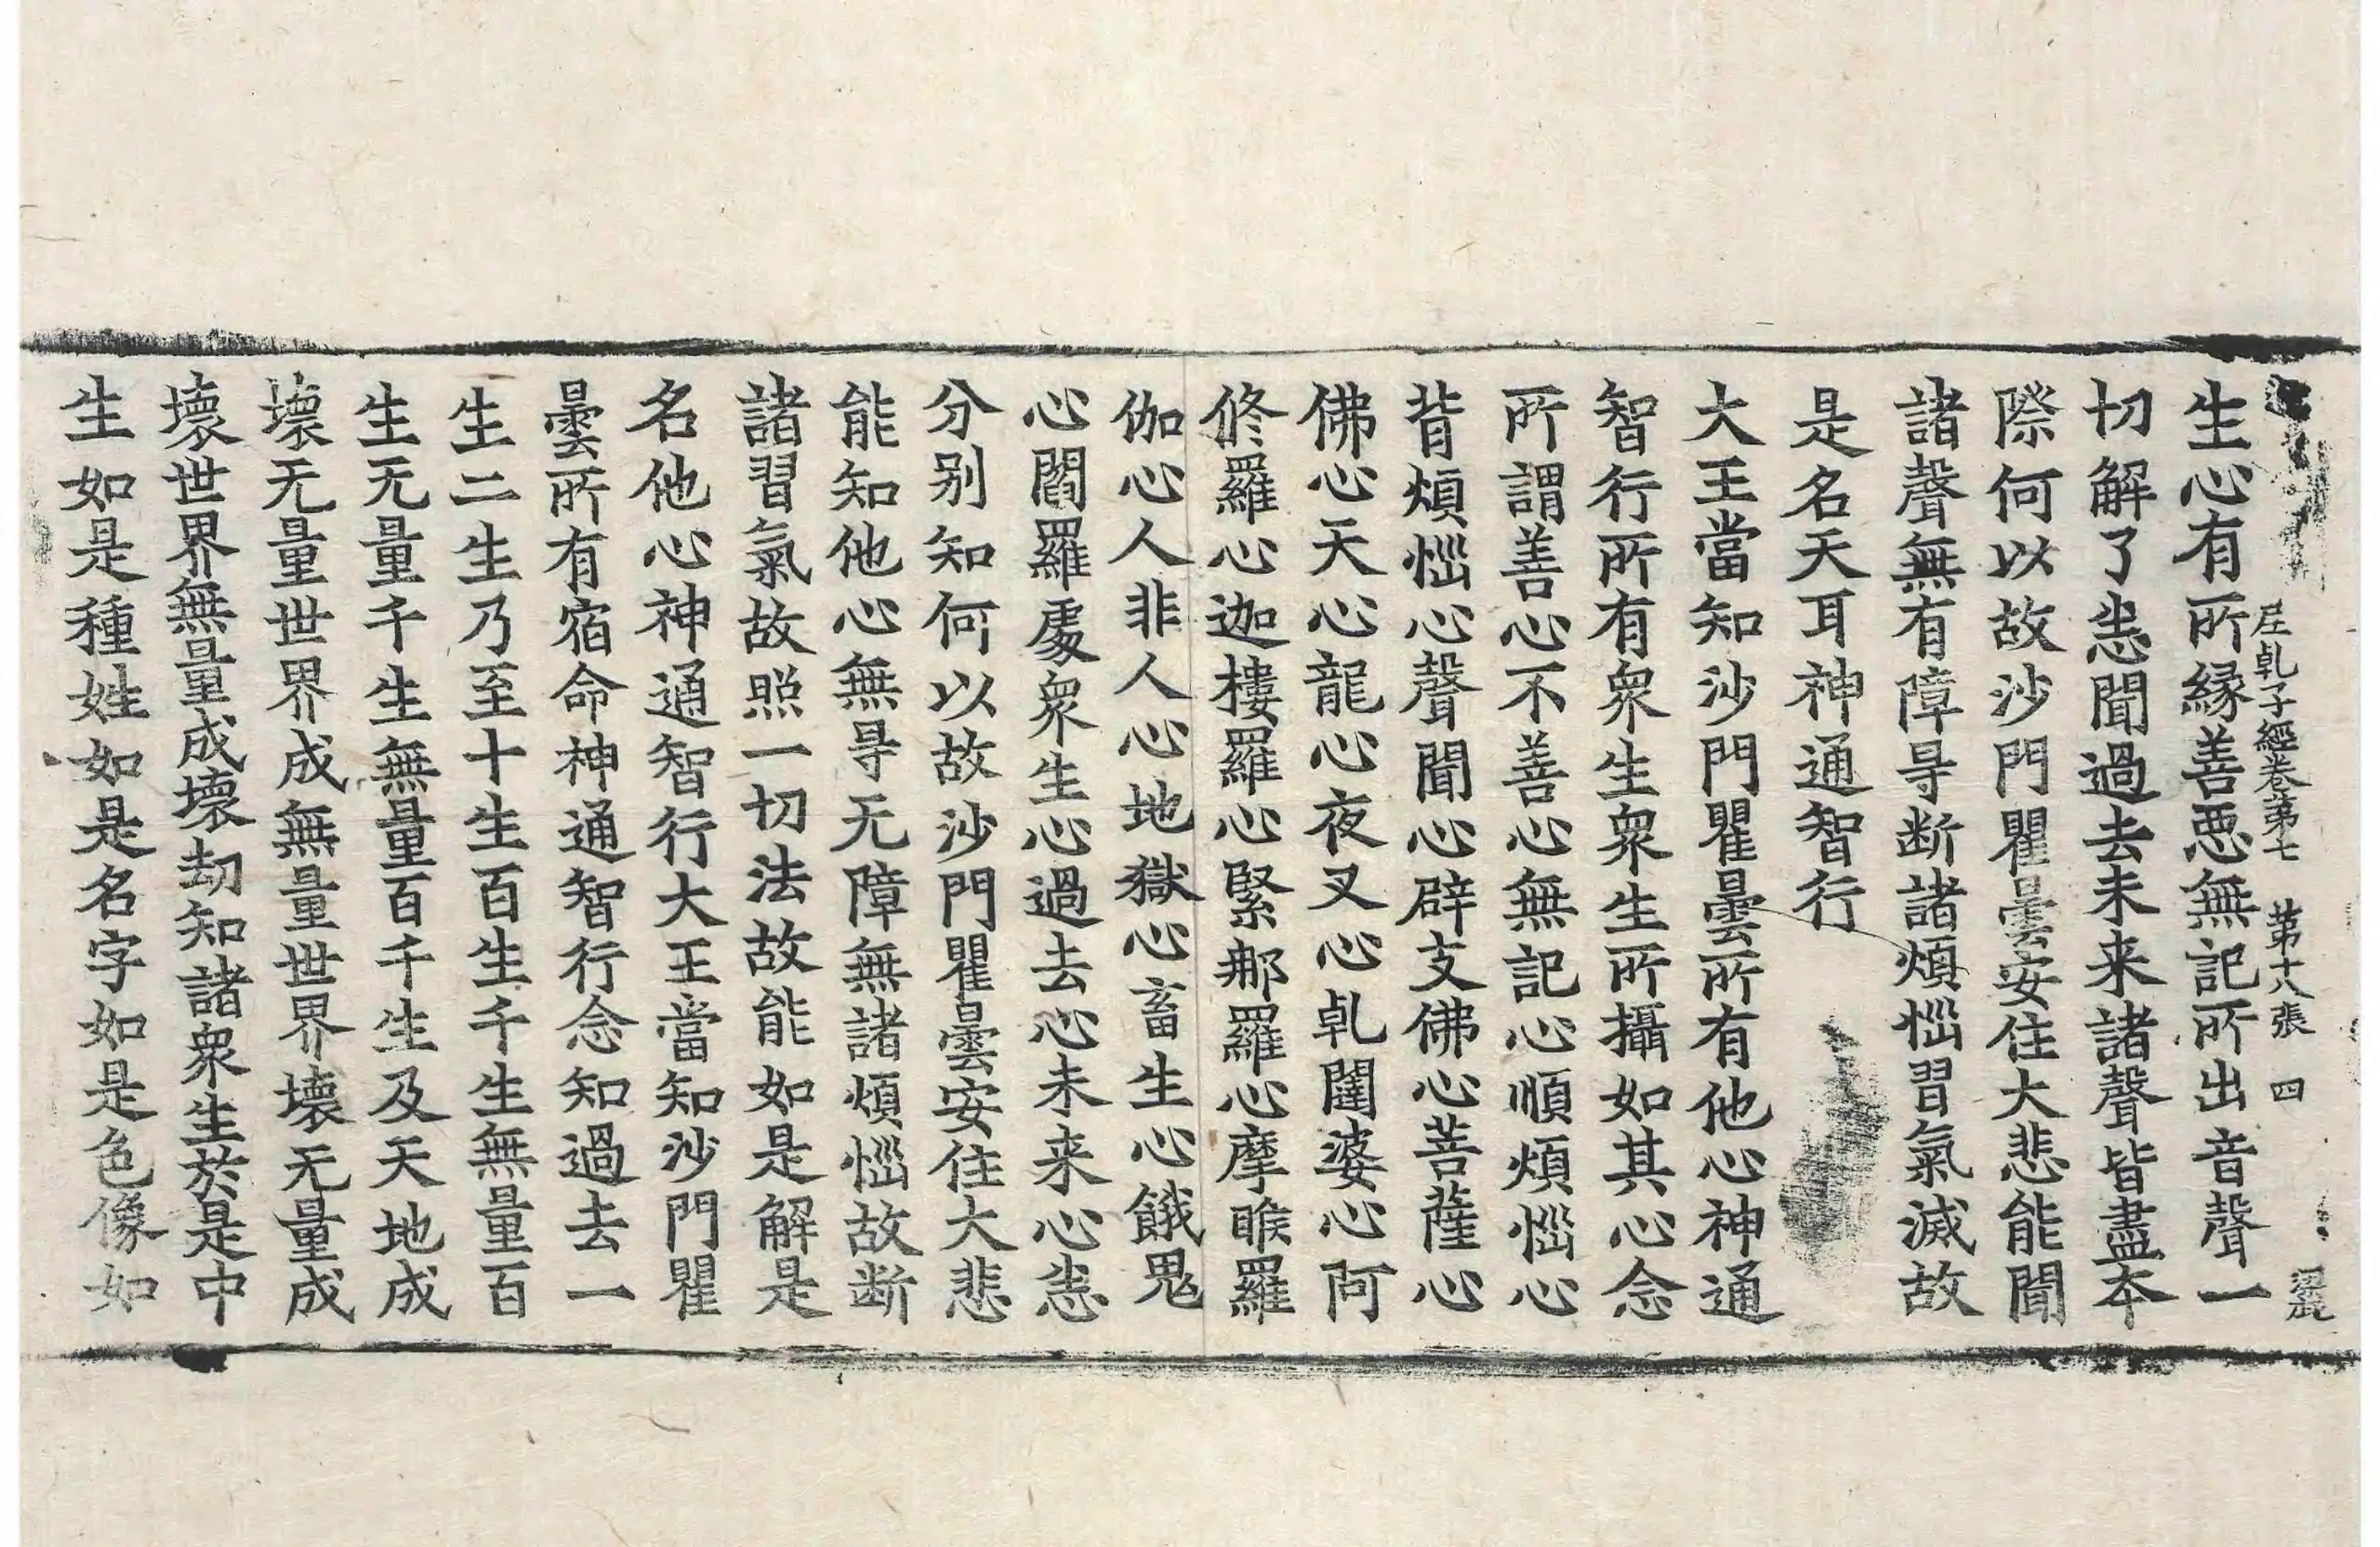 尼乹子經卷第七　第十八張　四
生心有所縁善惡無記所出音聲一
切解了悉聞過去未来諸聲皆盡夲
際何以故沙門瞿曇安住大悲能聞
諸聲無有障㝵断諸煩惱習氣滅故
是名天耳神通智行
大王當知沙門瞿曇所有他心神通
智行所有衆生衆生所攝如其心念
所謂善心不善心無記心順煩惱心
背煩惱心聲聞心辟支佛心菩薩心
佛心天心龍心夜叉心乹闥婆心阿
修羅心迦樓羅心緊那羅心摩睺羅
伽心人非人心地獄心畜生心餓鬼
心閻羅處衆生心過去心未来心悉
分别知何以故沙門瞿曇安住大悲
能知他心無㝵无障無諸煩惱故断
諸習氣故照一切法故能如是解是
名他心神通智行大王當知沙門瞿
曇所有宿命神通智行念知過去一
生二生乃至十生百生千生無量百
生无量千生無量百千生及天地成
壊无量世界成無量世界壊无量成
壊世界無量成壊劫知諸衆生於是中
生如是種姓如是名字如是色像如